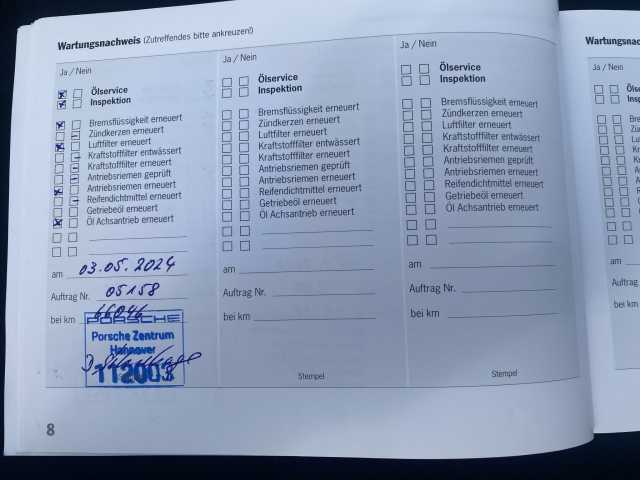 Wartungsnachweis (Zutreffendes bitte ankreuzen!)
Ja / Nein
Ölservice
Inspektion
Bremsflüssigkeit erneuert
Zündkerzen erneuert
Luftfilter erneuert
Kraftstofffilter entwässert
Kraftstofffilter erneuert
Antriebsriemen geprüft
Antriebsriemen erneuert
Reifendichtmittel erneuert
Getriebeöl erneuert
Öl Achsantrieb erneuert
am 03.05.2024
Auftrag Nr. 05158
bei km 66046
PORSCHE
Porsche Zentrum
Hannover
112003
Ja / Nein
Ölservice
Inspektion
Bremsflüssigkeit erneuert
Zündkerzen erneuert
Luftfilter erneuert
Kraftstofffilter entwässert
Kraftstofffilter erneuert
Antriebsriemen geprüft
Antriebsriemen erneuert
Reifendichtmittel erneuert
Getriebeöl erneuert
Öl Achsantrieb erneuert
am
Auftrag Nr.
bei km
Stempel
Ja / Nein
Ölservice
Inspektion
Bremsflüssigkeit erneuert
Zündkerzen erneuert
Luftfilter erneuert
Kraftstofffilter entwässert
Kraftstofffilter erneuert
Antriebsriemen geprüft
Antriebsriemen erneuert
Reifendichtmittel erneuert
Getriebeöl erneuert
Öl Achsantrieb erneuert
am
Auftrag Nr.
bei km
Stempel
8
Ja / Nein
am
Auftrag
bei km